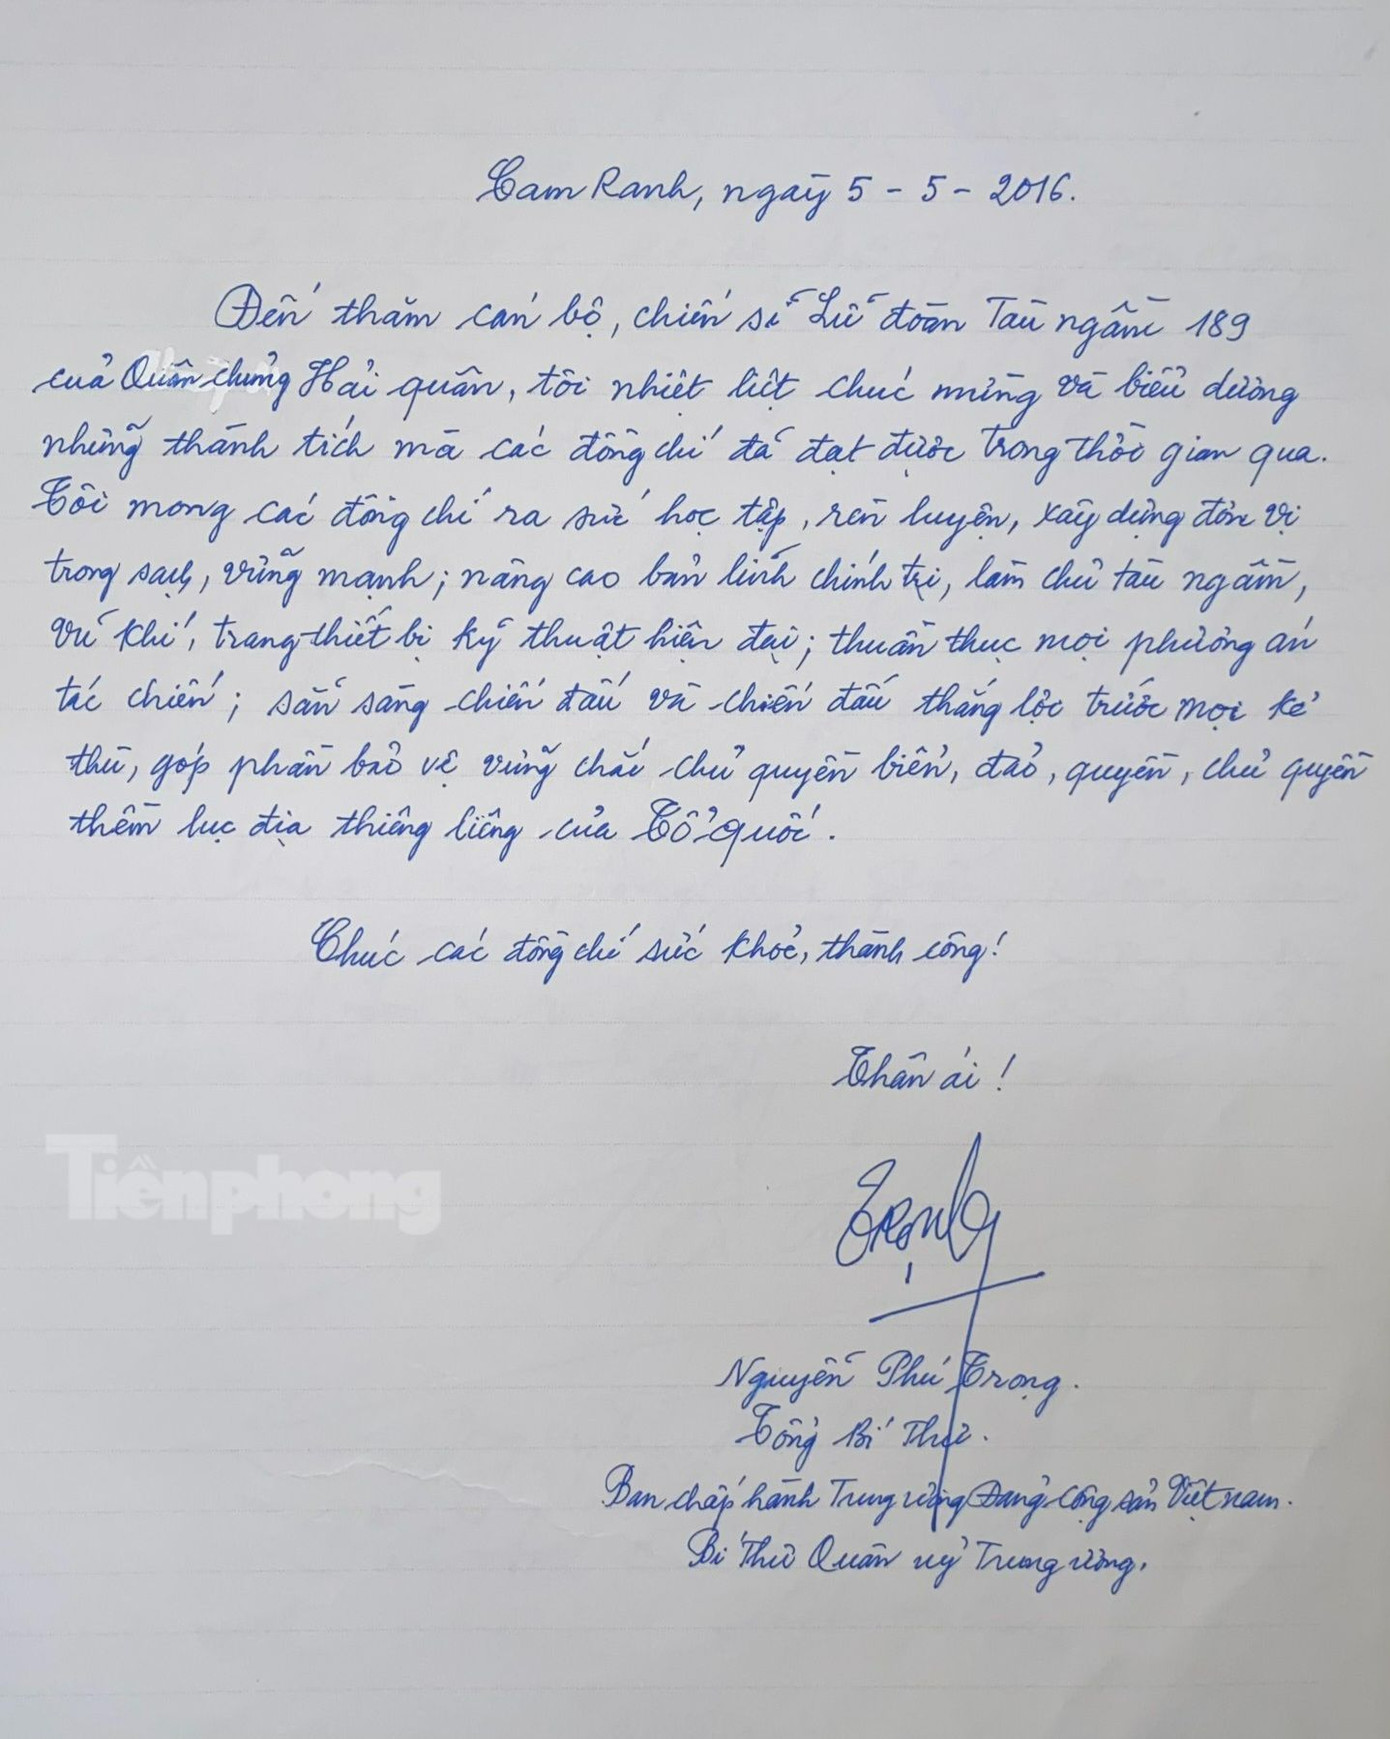 Cam Ranh, ngày 5 - 5 - 2016.
Đến thăm cán bộ, chiến sĩ Lữ đoàn Tàu ngầm 189
của Quân chủng Hải quân, tôi nhiệt liệt chúc mừng và biểu dương
những thành tích mà các đồng chí đã đạt được trong thời gian qua.
Tôi mong các đồng chí ra sức học tập, rèn luyện, xây dựng đơn vị
trong sạch, vững mạnh; nâng cao bản lĩnh chính trị, làm chủ tàu ngầm,
vũ khí, trang thiết bị kỹ thuật hiện đại; thuần thục mọi phương án
tác chiến; sẵn sàng chiến đấu và chiến đấu thắng lợi trước mọi kẻ
thù, góp phần bảo vệ vững chắc chủ quyền biển, đảo, quyền, chủ quyền
thềm lục địa thiêng liêng của Tổ quốc.
Chúc các đồng chí sức khoẻ, thành công!
Thân ái !
Tiềnphong
Trọng
Nguyễn Phú Trọng.
Tổng Bí Thư.
Ban chấp hành Trung ương Đảng cộng sản Việt nam.
Bí Thư Quân uỷ Trung ương.